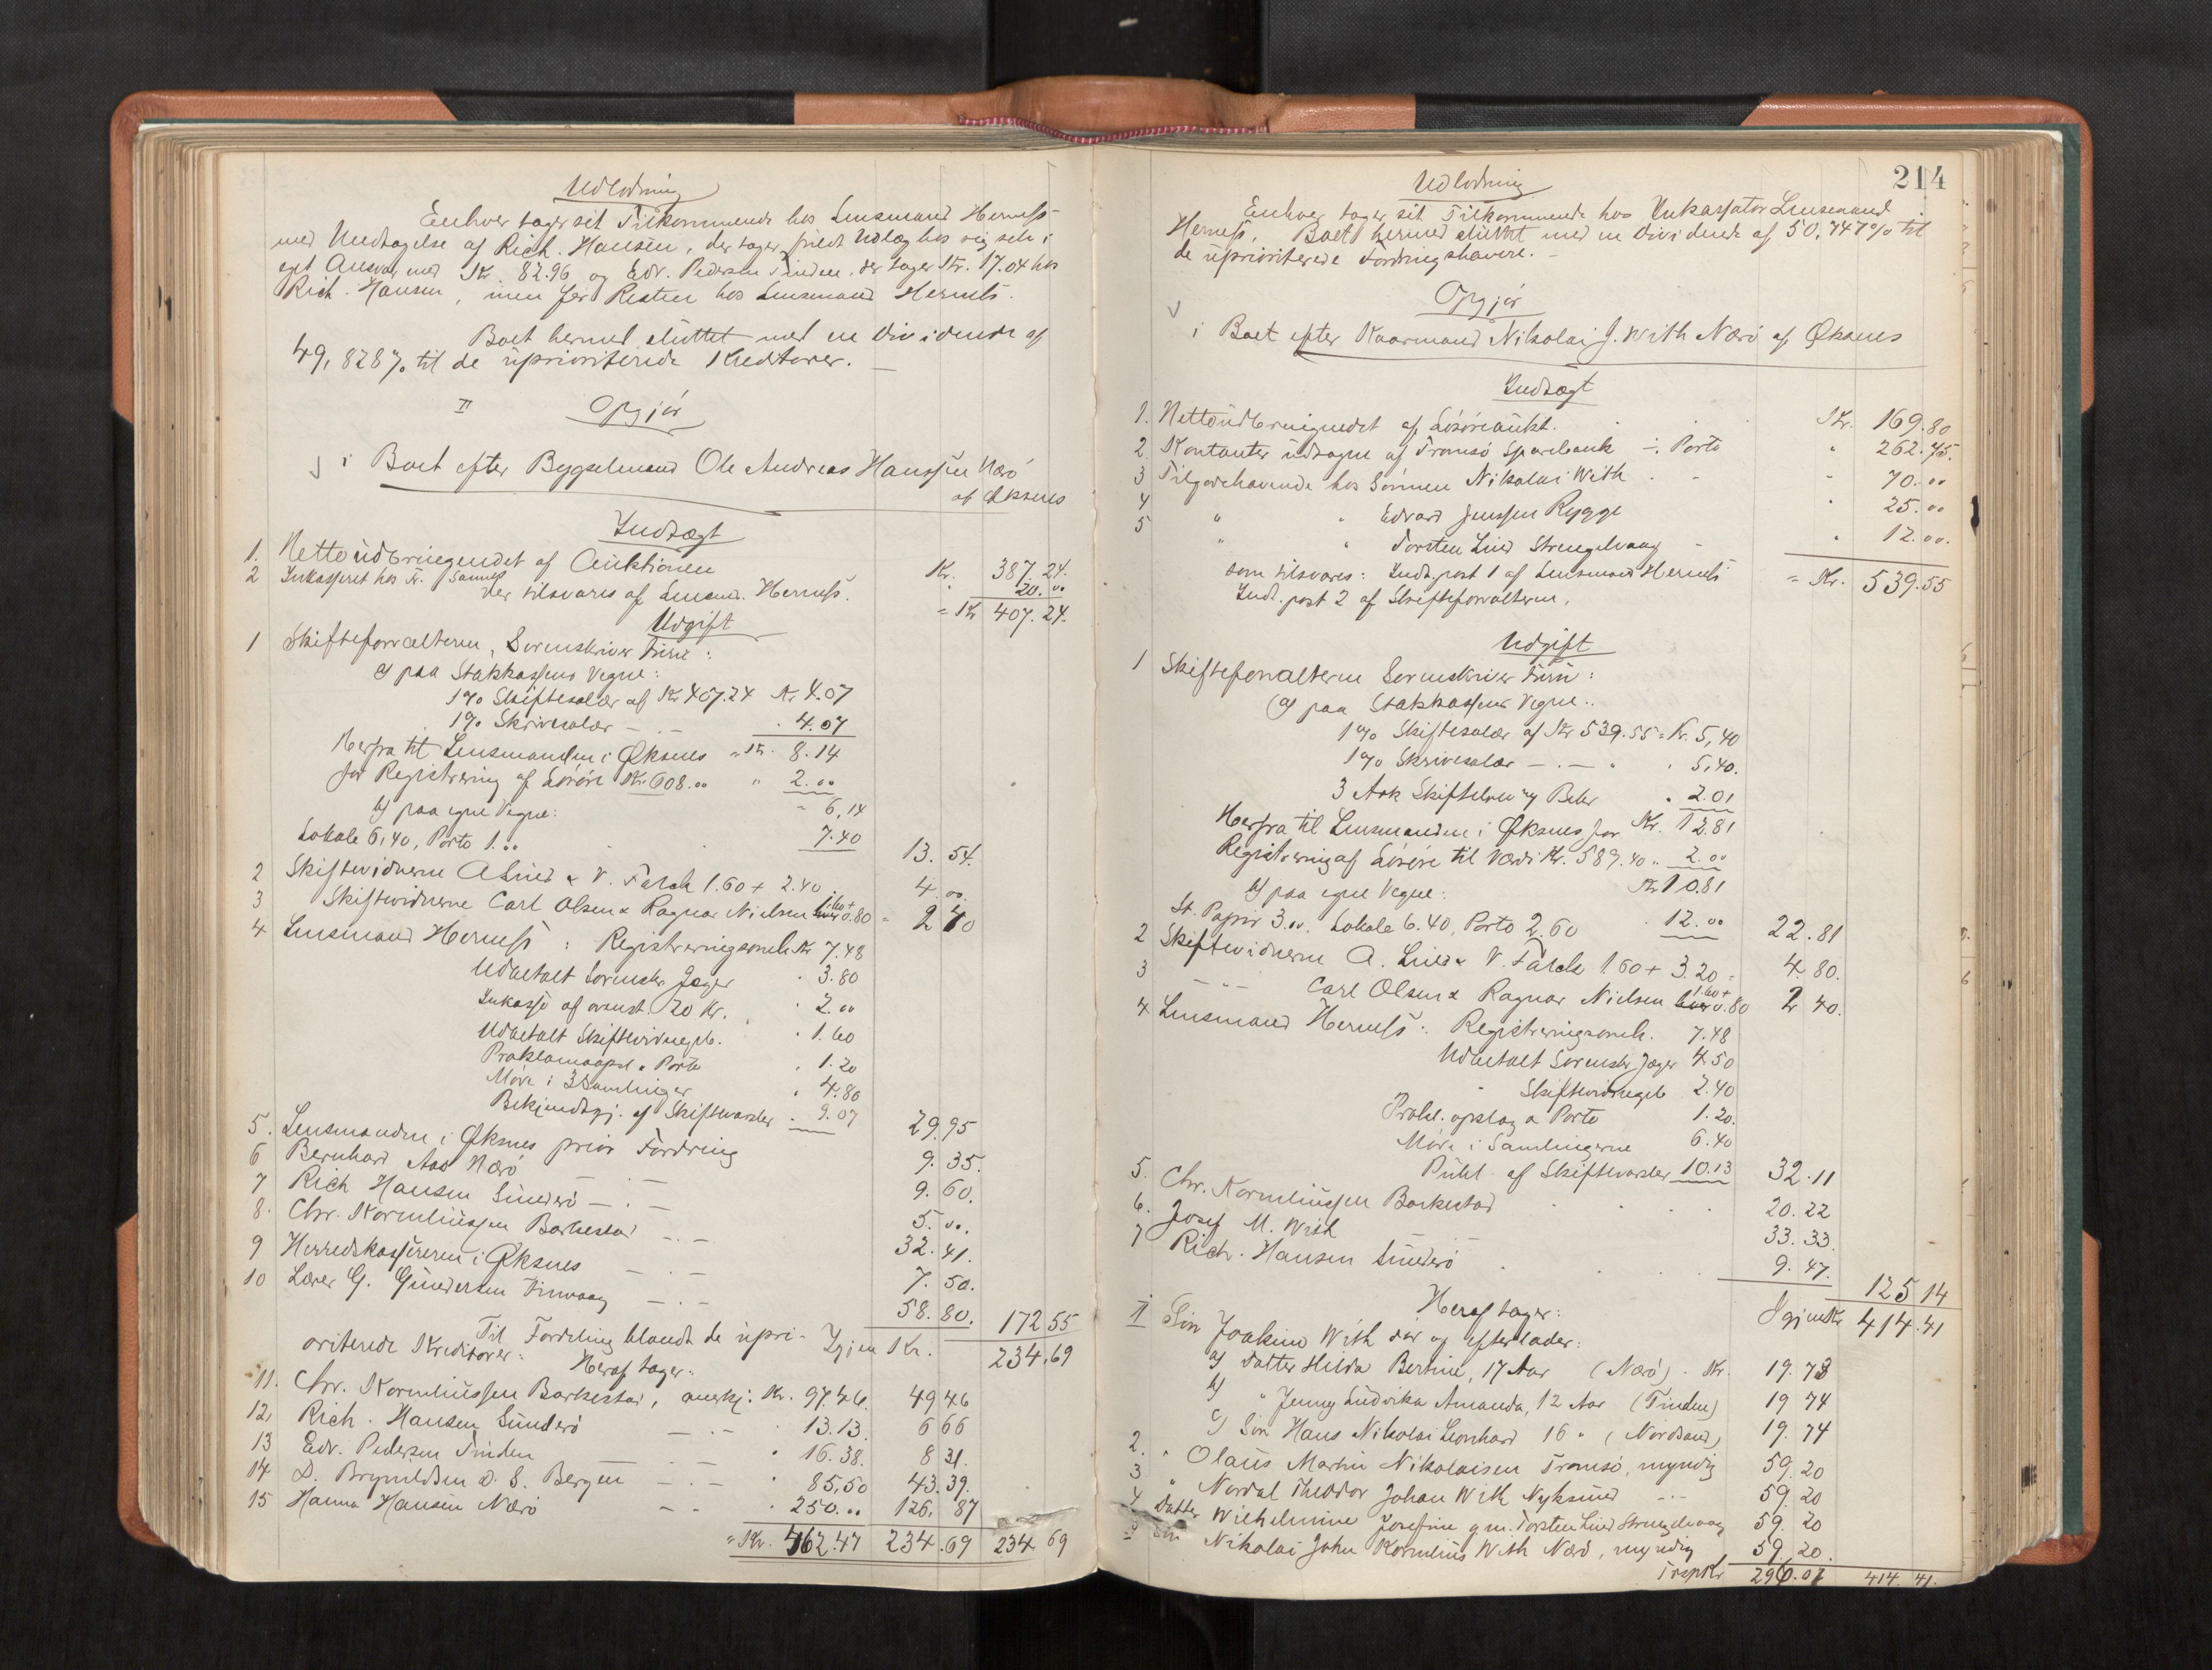 Udlodning
Enhver tager sit Tilkommende hos Lensmand Herness
med Undtagelse af Rich. Hansen, der tager fuldt Udlæg hos sig selv i
eget Ansvar med Kr 82.96 og Edv. Pedersen Tinden, der tager Kr. 17.04 hos
Rich. Hansen, men for Resten hos Lensmand Herness.
Boet hermed sluttet med en Dividende af
49,828% til de uprioriterede Kreditorer. —
II Opgjør
i Boet efter Bygselmand Ole Andreas Hanssen Nærø
af Øksnes
Indtægt
1. Nettoudbringendet af Auktionen Kr. 387.24.
2 Inkasseret hos Fr. Sannes " 20.00
der tilsvares af Lensm. Herness. = Kr 407.24.
Udgift
1 Skifteforvalteren, Sorenskriver Finne:
a) paa Statskassens Vegne:
1% Skiftesalær af Kr 407.24 Kr 4.07
1% Skrivesalær — . — . 4.07
Herfra til Lensmanden i Øksnes = Kr. 8.14
for Registrering af Løsøre Kr. 608.00 " 2.00
= 6,14
b) paa egne Vegne:
Lokale 6,40, Porto 1.00 7.40 13.54.
2 Skiftevidnerne A Lind & V. Falch 1.60 + 2.40 4.00.
3 Skiftevidnerne Carl Olsen & Ragnar Nielsen 1.60 + 0.80 = 2 40
4 Lensmand Herness: Registreringsomk. Kr 7.48
Udbetalt Sorenskr Jæger . 3.80
Inkasso af ovenst. 20 Kr. . 2.00
Udbetalt Skiftevidnegeb. . 1.60
Proklamaopsl. & Porto . 1.20
Møde i 3 Samlinger . 4.80
Bekjendtgj. af Skiftevarsler . 9.07 29.95
5. Lensmanden i Øksnes prior Fordring 9.35.
6 Bernhard Aas Nærø — . — 9.60.
7 Rich Hansen Sunderø — . — 5.00.
8. Chr. Kornliussen Barkestad — . — 32.41.
9 Herredskassereren i Øksnes — . — 7.50.
10 Lærer G. Gundersen Tinvaag — . — 58.80. 172 55
Til Fordeling blandt de upri-
oriterede Kreditorer: Igjen Kr. 234.69
Heraf tager:
11. Chr. Kornliussen Barkestad, anerkj: Kr. 97.46. 49 46
12, Rich. Hansen Sunderø — . — . 13.13. 6 66
13 Edv. Pedersen Tinden — . — " 16.38. 8 31.
14 D. Brynildsen D. S. Bergen — . — " 85,50 43.39.
15 Hanna Hansen Nærø — — . 250.00 126. 87
= Kr. 462.47 234.69 234 69
214
Udlodning
Enhver tager sit Tilkommende hos Inkassator Lensmand
Herness. Boet hermed sluttet med en Dividende af 50,747% til
de uprioriterede Fordringshavere. —
Opgjør
i Boet efter Kaarmand Nikolai J. With Nærø af Øksnes
Indtægt
1. Nettoudbringendet af Løsøreaukt. Kr. 169.80
2. Kontanter udtagne af Tromsø Sparebank ÷ Porto " 262.75.
3 Tilgodehavende hos Sønnen Nikolai With " 70.00
4 " " Edvard Jenssen Rygge " 25.00
5 " " Torsten Lind Strengelvaag " 12.00.
som tilsvares: Indt. post 1 af Lensmand Herness = Kr. 539.55
Indt. post 2 af Skifteforvalteren.
Udgift
1 Skifteforvalteren Sorenskriver Finne:
a) paa Statskassens Vegne..
1% Skiftesalær af Kr 539.55 = Kr. 5,40
1% Skrivesalær — . — " . 5,40.
3 Ark Skiftebrev og Bekr . 2.01
Kr. 12.81
Herfra til Lensmanden i Øksnes for
Registrering af Løsøre til Værdi Kr. 589.40 .. 2.00
Kr 10.81
b) paa egne Vegne:
St. Papir 3.00. Lokale 6.40, Porto 2.60 . 12.00 22.81
2 Skiftevidnerne A. Lind & V. Falch 1.60 + 3.20 = 4.80.
3 — " — Carl Olsen & Ragnar Nielsen 1.60 + 0.80 2 40.
4 Lensmand Herness: Registreringsomk. 7.48
Udbetalt Sorenskr Jæger 4.50
" Skiftevidnegeb 2.40
Prokl. opslag & Porto 1.20.
Møde i Samlingerne 6.40
Publ. af Skiftevarsler 10.13 32.11
5. Chr. Kornliussen Barkestad 20.22
6. Josef M. With 33.33.
7 Rich. Hansen Sunderø 9.47. 125 14
Igjen Kr 414.41
Heraf tager:
1 Søn Joakim With død og efterlader:
a) Datter Hilda Bertine, 17 Aar (Nærø) . Kr. 19.73
b) " Jenny Ludvika Amanda, 12 Aar (Tinden) 19 74
c) Søn Hans Nikolai Leonhard 16 " (Nordsand) 19.74
2. " Olaus Martin Nikolaisen Tromsø, myndig 59.20
3 " Nordal Theodor Johan With Nyksund — . — 59.20
4 Datter Wilhelmine Josefine g.m. Torsten Lind Strengelvaag 59.20
5 Søn Nikolai John Kornelius With Nærø, myndig 59.20.
Transp Kr 296.01 414.41.